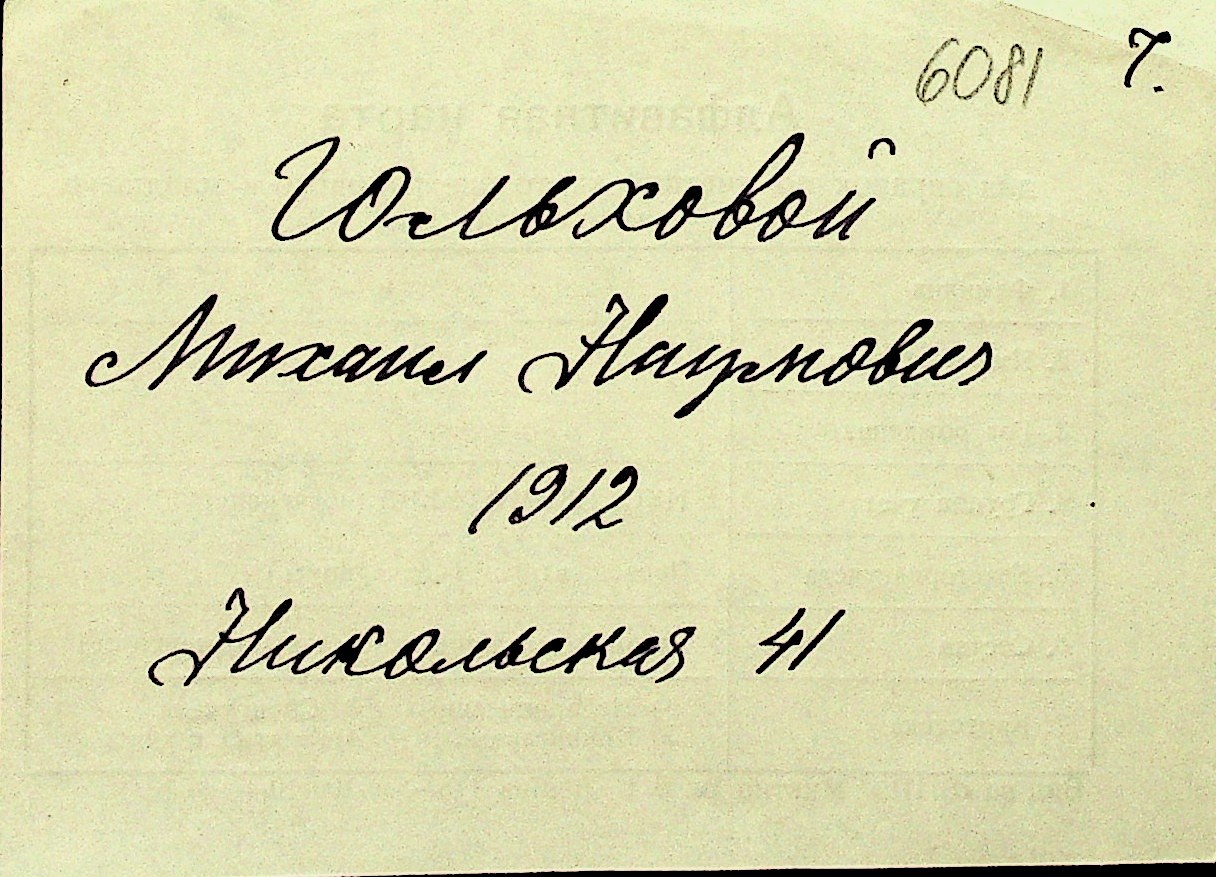 6081 7.
Гольховой
Михаил Наумович
1912
Никольская 41